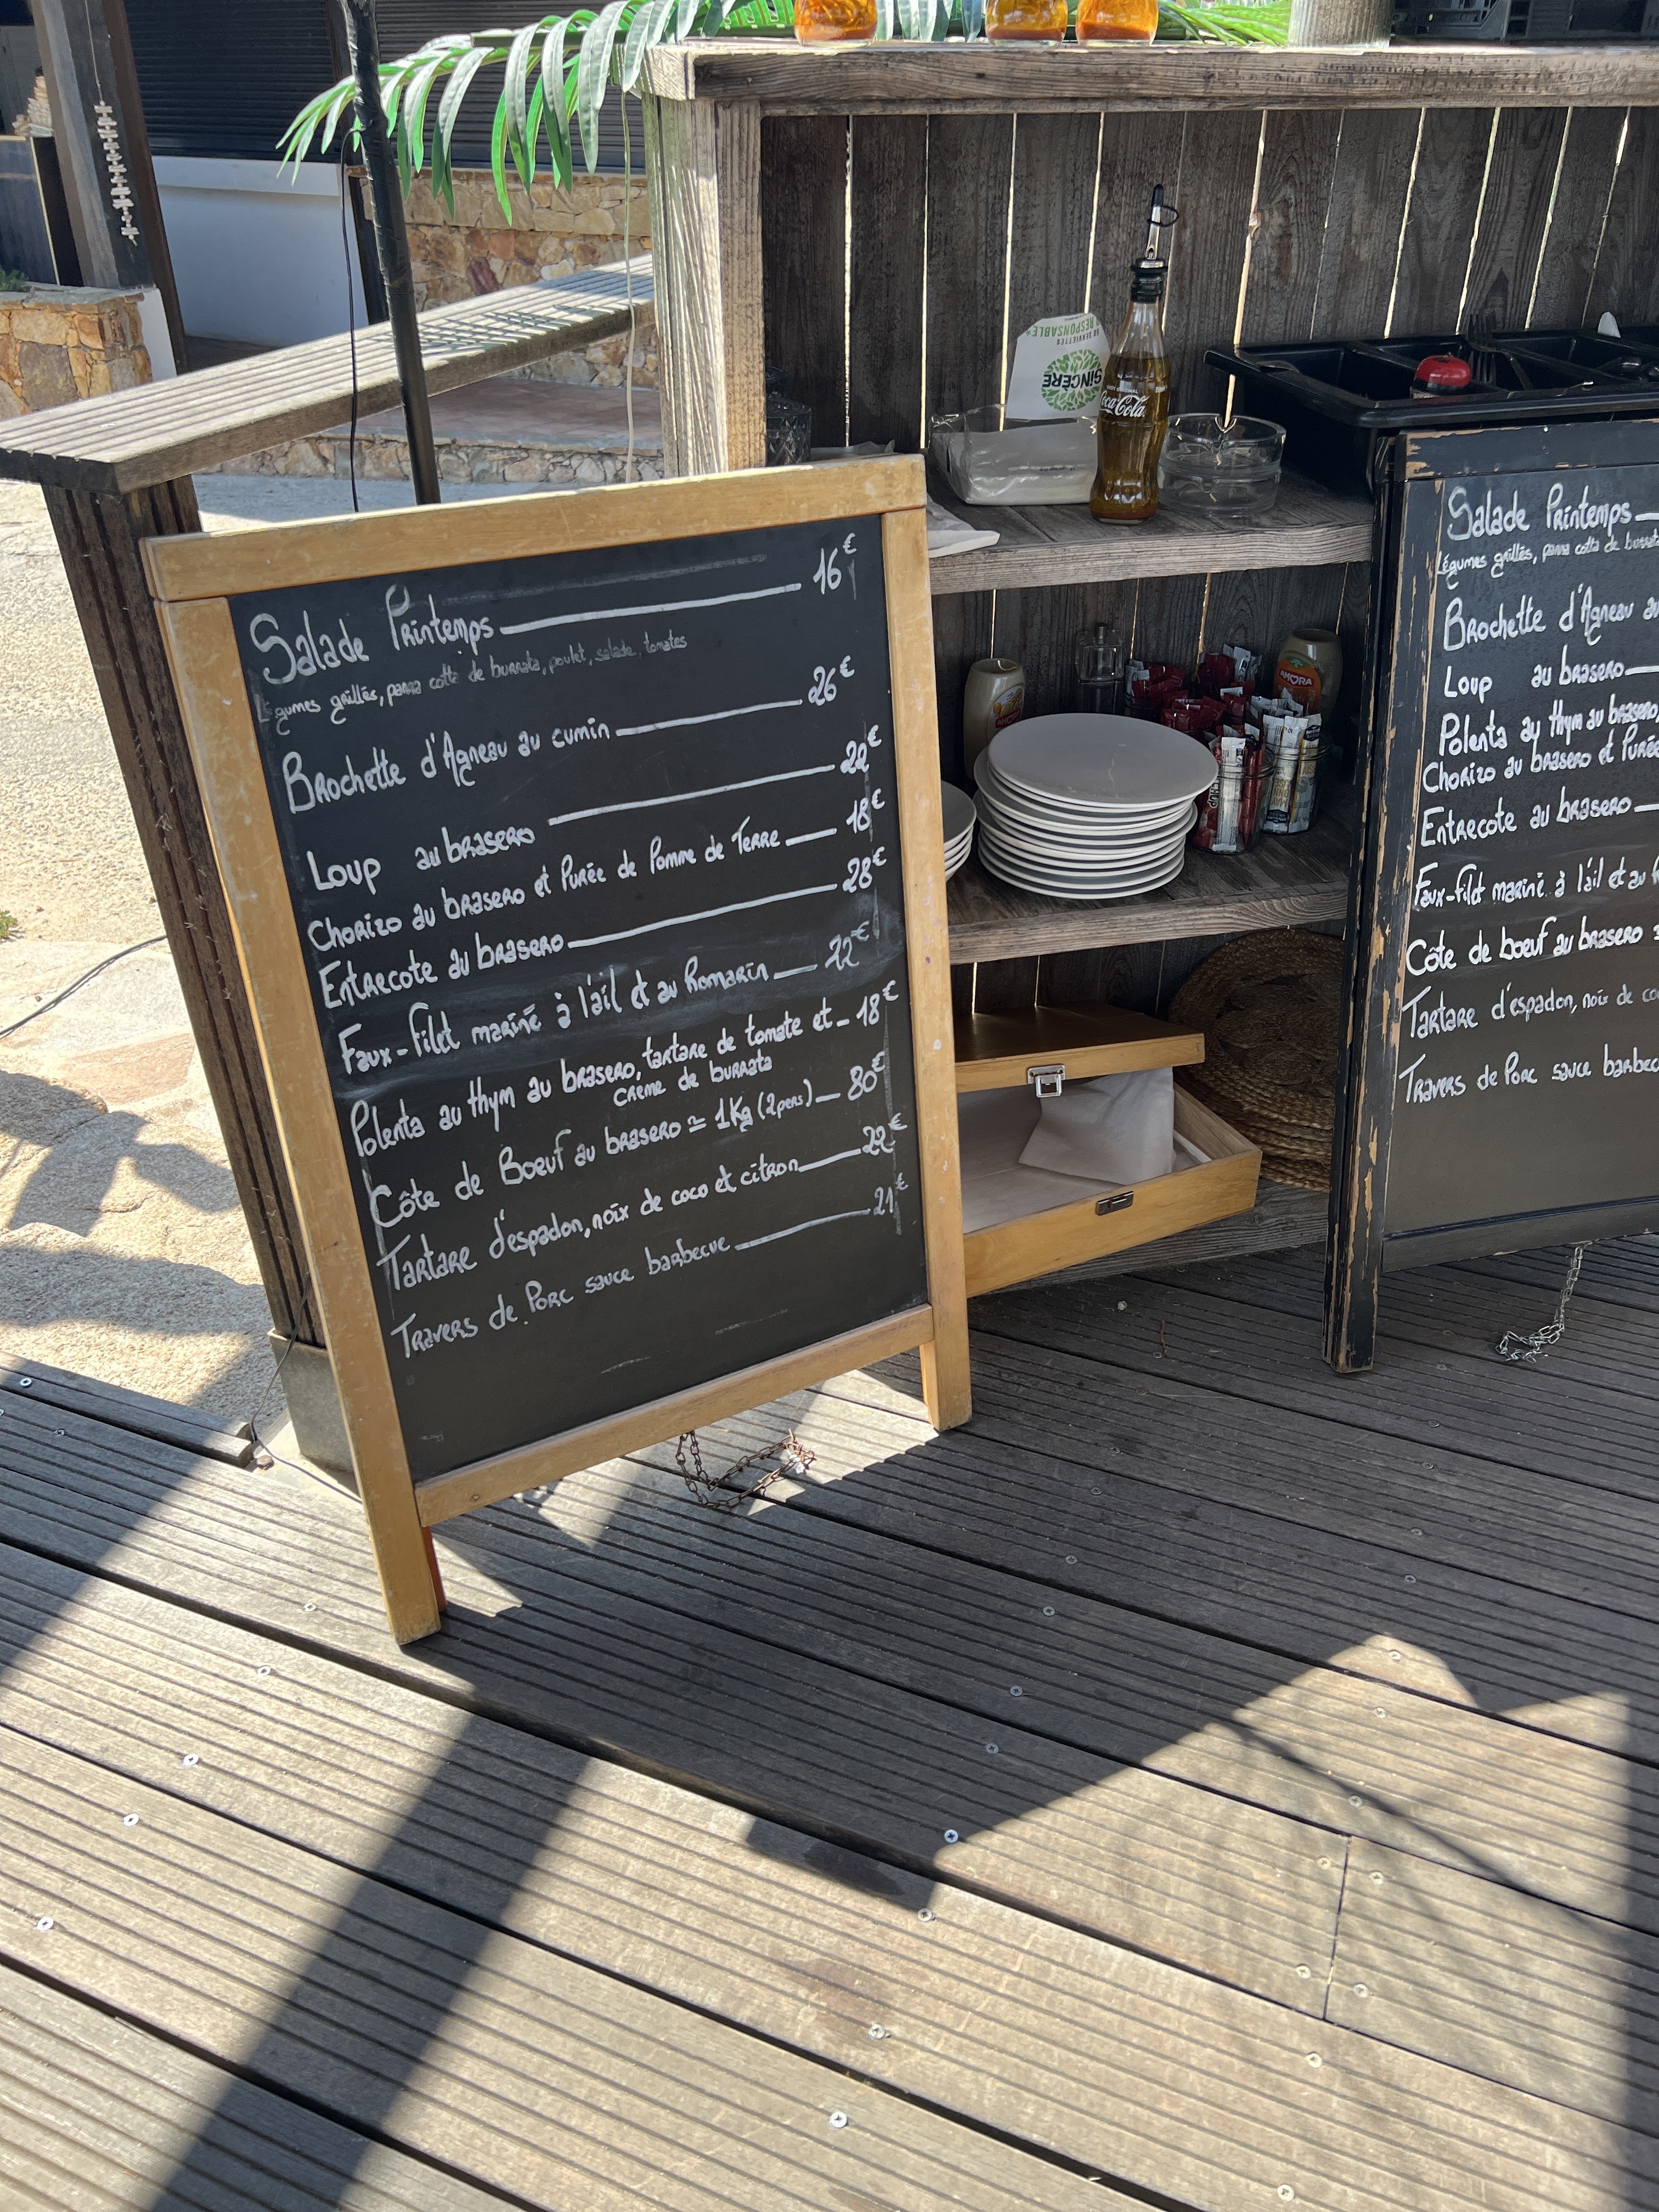 Salade Printemps 16€
Légumes grillés, panna cotta de burrata, poulet, salade, tomates
Brochette d'Agneau au cumin 26€
Loup au brasero 22€
Chorizo au brasero et Purée de Pomme de Terre 18€
Entrecote au brasero 28€
Faux-filet mariné à l'ail et au Romarin 22€
Polenta au thym au brasero, tartare de tomate et 18€
crème de burrata
Côte de Boeuf au brasero ≃ 1Kg (2pers) 80€
Tartare d'espadon, noix de coco et citron 22€
Travers de Porc sauce barbecue 21€
SERVIETTES
RESPONSABLE
SINCÈRE
Coca-Cola
AMORA
AMORA
Salade Printemps
Légumes grillés, panna cotta de burrata
Brochette d'Agneau au
Loup au brasero
Polenta au thym au brasero,
Chorizo au brasero et Purée
Entrecote au brasero
Faux-filet mariné à l'ail et au
Côte de boeuf au brasero
Tartare d'espadon, noix de co
Travers de Porc sauce barbec